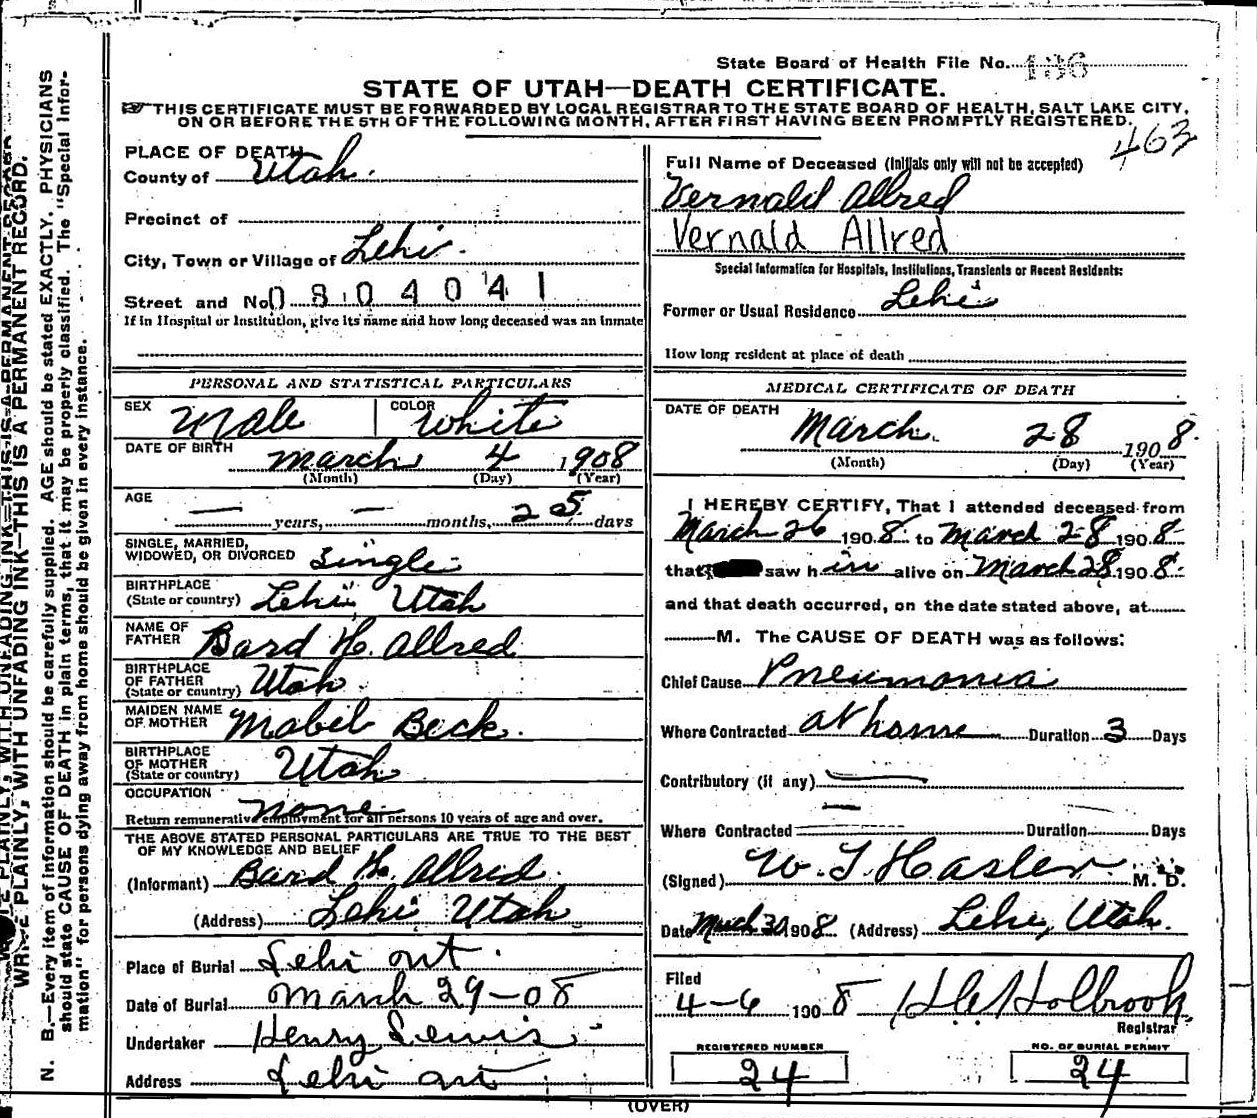 State Board of Health File No. 136
STATE OF UTAH—DEATH CERTIFICATE.
THIS CERTIFICATE MUST BE FORWARDED BY LOCAL REGISTRAR TO THE STATE BOARD OF HEALTH, SALT LAKE CITY,
ON OR BEFORE THE 5TH OF THE FOLLOWING MONTH, AFTER FIRST HAVING BEEN PROMPTLY REGISTERED.
463
PLACE OF DEATH
County of Utah.
Precinct of
City, Town or Village of Lehi.
Street and No. 0804041
If in Hospital or Institution, give its name and how long deceased was an inmate
PERSONAL AND STATISTICAL PARTICULARS
SEX Male COLOR White
DATE OF BIRTH March 4 1908
(Month) (Day) (Year)
AGE
— years, — months, 25 days
SINGLE, MARRIED,
WIDOWED, OR DIVORCED Single
BIRTHPLACE
(State or country) Lehi, Utah
NAME OF
FATHER Bard H. Allred
BIRTHPLACE
OF FATHER
(State or country) Utah
MAIDEN NAME
OF MOTHER Mabel Beck.
BIRTHPLACE
OF MOTHER
(State or country) Utah
OCCUPATION
none
Return remunerative employment for all persons 10 years of age and over.
THE ABOVE STATED PERSONAL PARTICULARS ARE TRUE TO THE BEST
OF MY KNOWLEDGE AND BELIEF
(Informant) Bard H. Allred
(Address) Lehi Utah
Place of Burial Lehi
Date of Burial March 29-08
Undertaker Henry Lewis
Address Lehi
Full Name of Deceased (Initials only will not be accepted)
Vernald Allred
Vernald Allred
Special Information for Hospitals, Institutions, Transients or Recent Residents:
Former or Usual Residence Lehi
How long resident at place of death
MEDICAL CERTIFICATE OF DEATH
DATE OF DEATH
March. 28 1908.
(Month) (Day) (Year)
I HEREBY CERTIFY, That I attended deceased from
March 26 1908. to March 28 1908.
that saw him alive on March 28 1908.
and that death occurred, on the date stated above, at
M. The CAUSE OF DEATH was as follows:
Chief Cause Pneumonia
Where Contracted at home Duration 3 Days
Contributory (if any) —
Where Contracted Duration Days
(Signed) W. T. Hasler M. D.
Date March 30 1908. (Address) Lehi, Utah.
Filed
4-6 1908 Holbrook
Registrar
REGISTERED NUMBER
24
NO. OF BURIAL PERMIT
24
(OVER)
WRITE PLAINLY, WITH UNFADING INK—THIS IS A PERMANENT RECORD.
N. B.—Every item of information should be carefully supplied. AGE should be stated EXACTLY. PHYSICIANS
should state CAUSE OF DEATH in plain terms, that it may be properly classified. The "Special Infor-
mation" for persons dying away from home should be given in every instance.